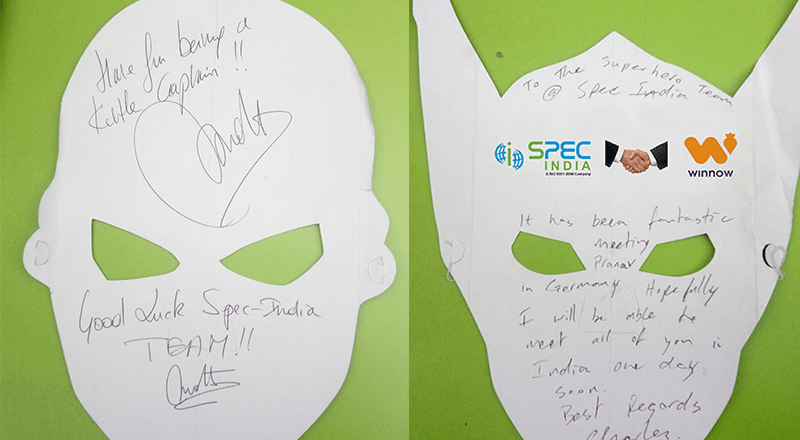 Have fun being a
Kittle Captain !!
Good Luck Spec-India
TEAM!!
To The Superhero Team
@ Spec India
SPEC
INDIA
A ISO 9001:2008 Company
winnow
It has been fantastic
meeting
Pranav
in Germany. Hopefully
I will be able to
meet all of you in
India one day
soon.
Best Regards
Charles